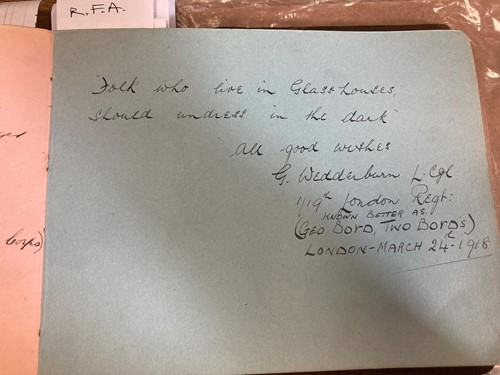 R.F.A.
"Folk who live in Glass houses,
should undress in the dark"
All good wishes
G. Wedderburn L: Cpl
1/19th London Regt:
KNOWN BETTER AS.
(GEO BORD, TWO BORD'S)
LONDON-MARCH 24th-1918
Corps)